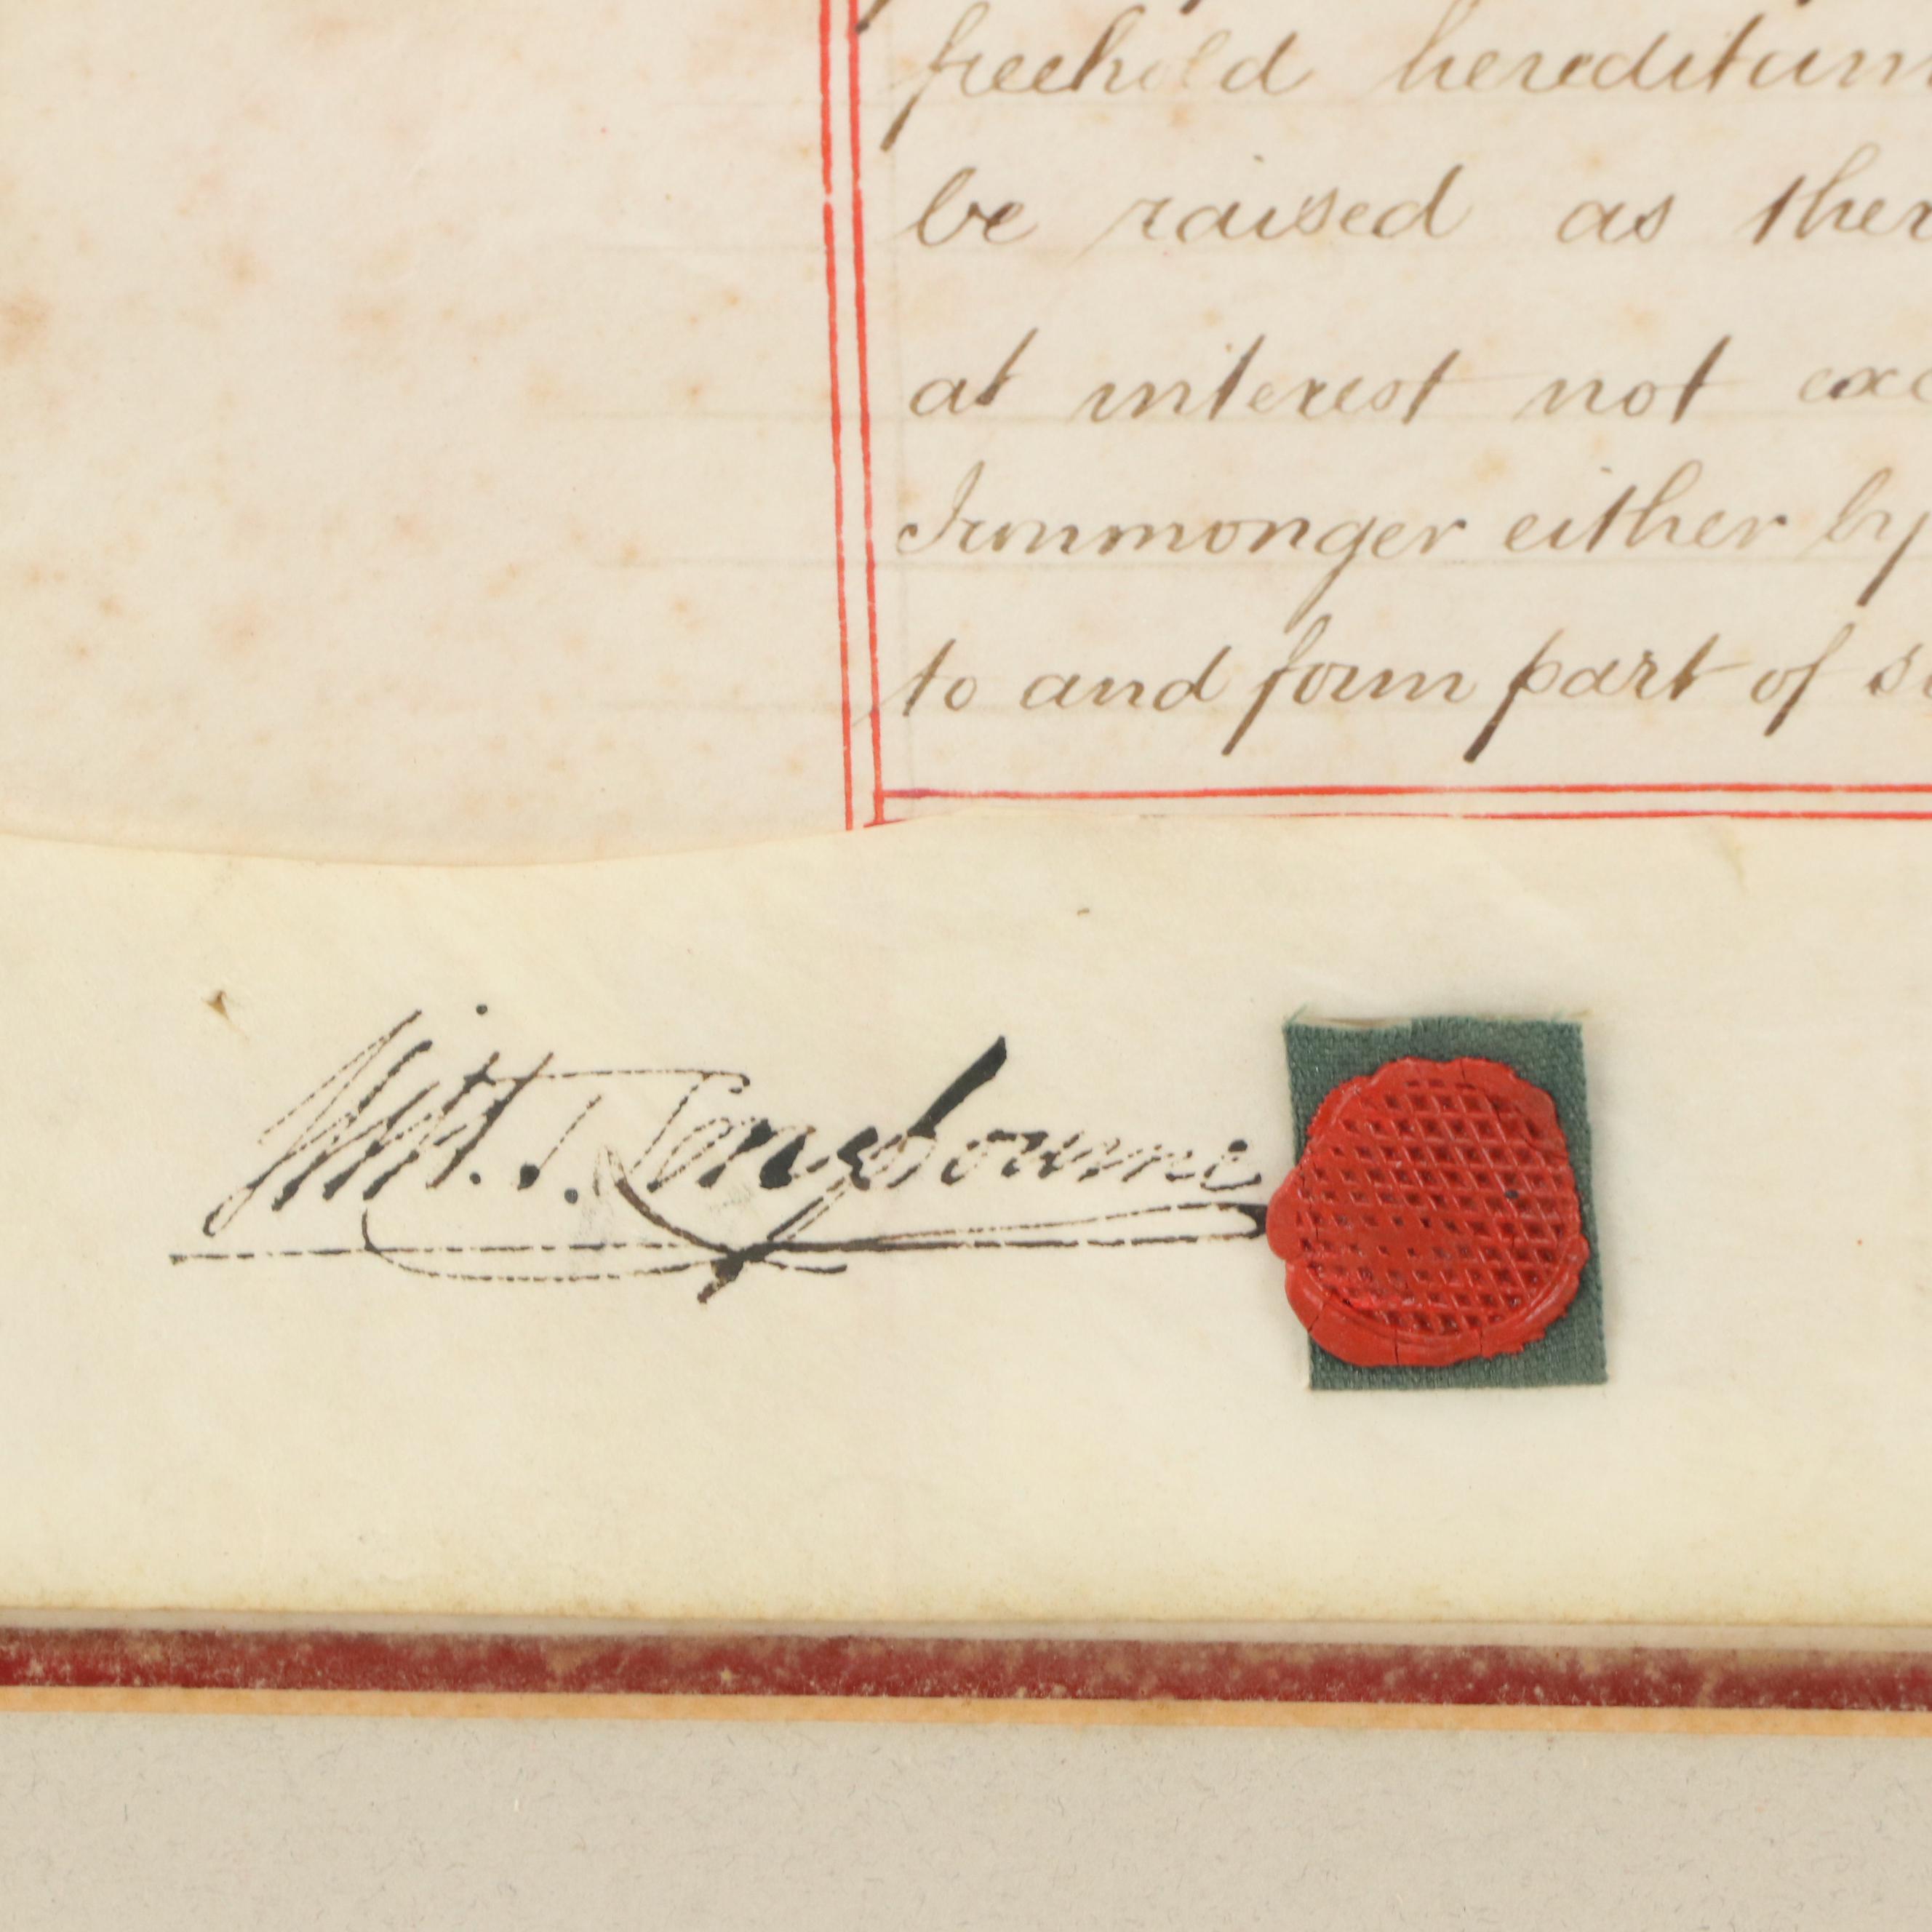 freehold hereditam
be raised as ther
at interest not exc
Ironmonger either by
to and form part of s
Longbourne